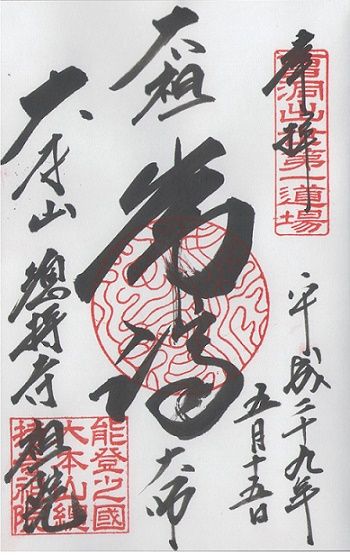 奉拝
曹洞出世第一道場
平成二十九年
五月十五日
太祖
常濟
大師
大本山
總持寺
祖院
能登之國
大本山總
持寺祖院